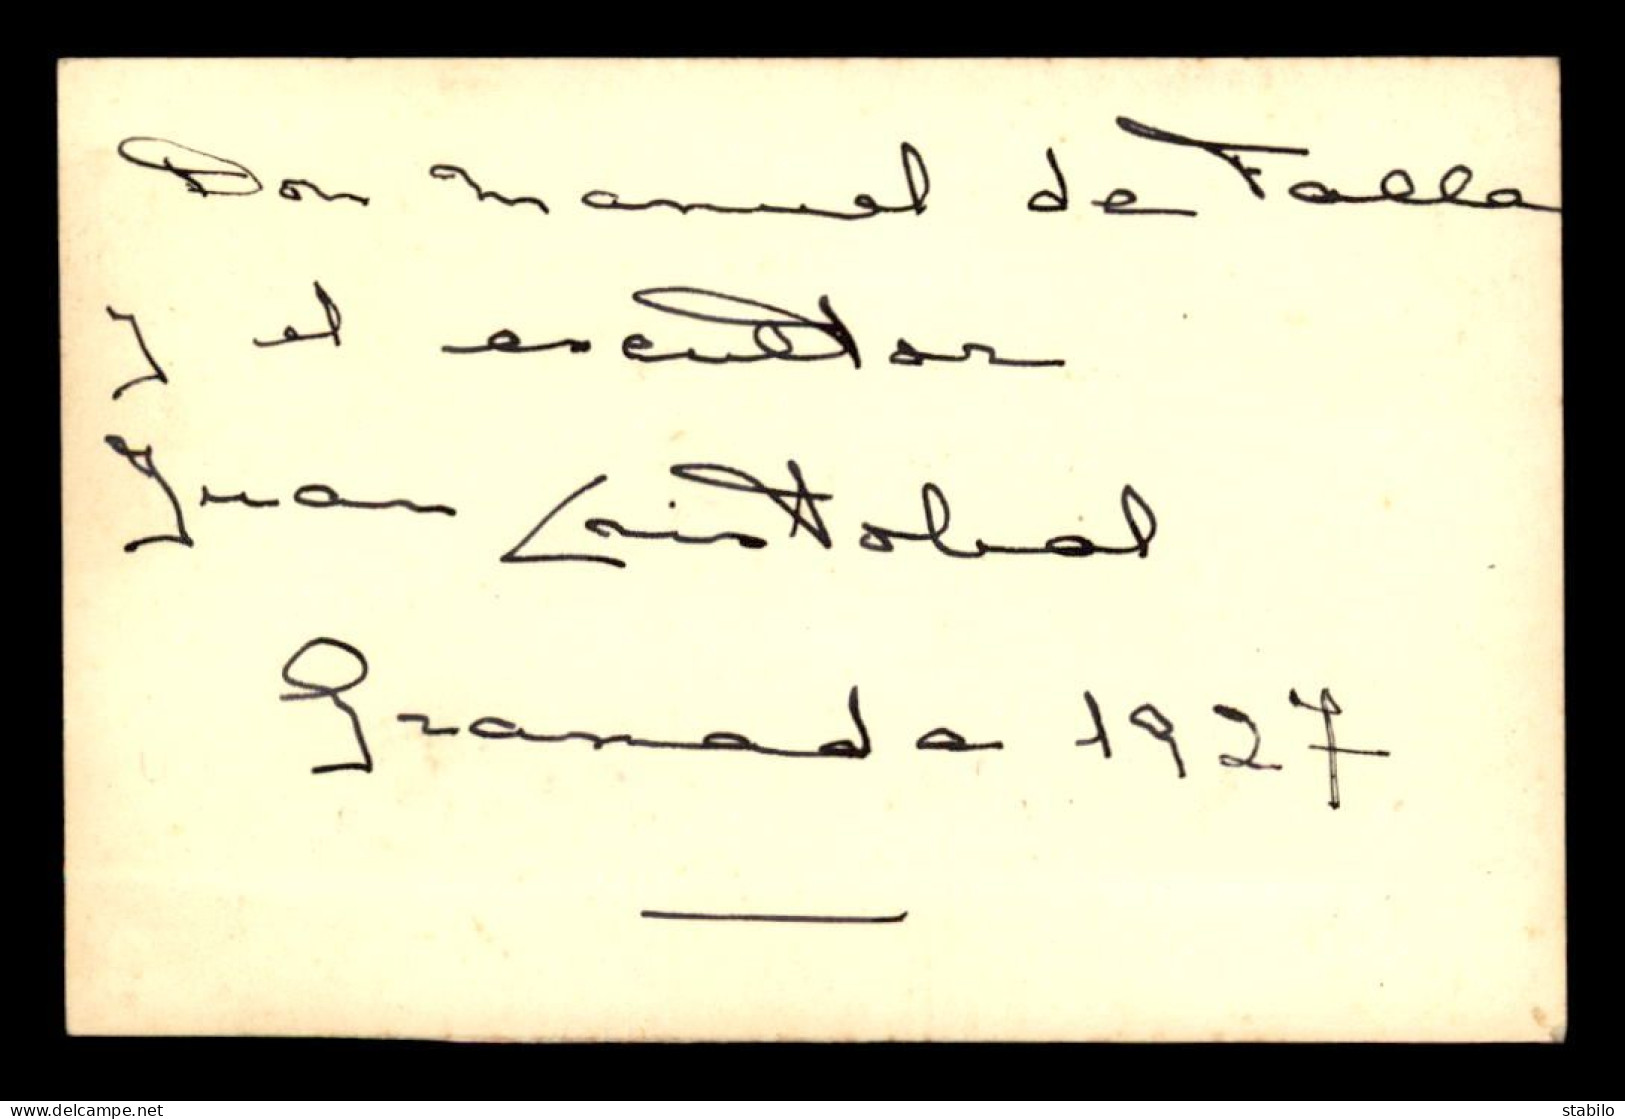 Don Manuel de Falla
y el escultor
Juan Cristobal
Granada 1927
www.delcampe.net
stabilo